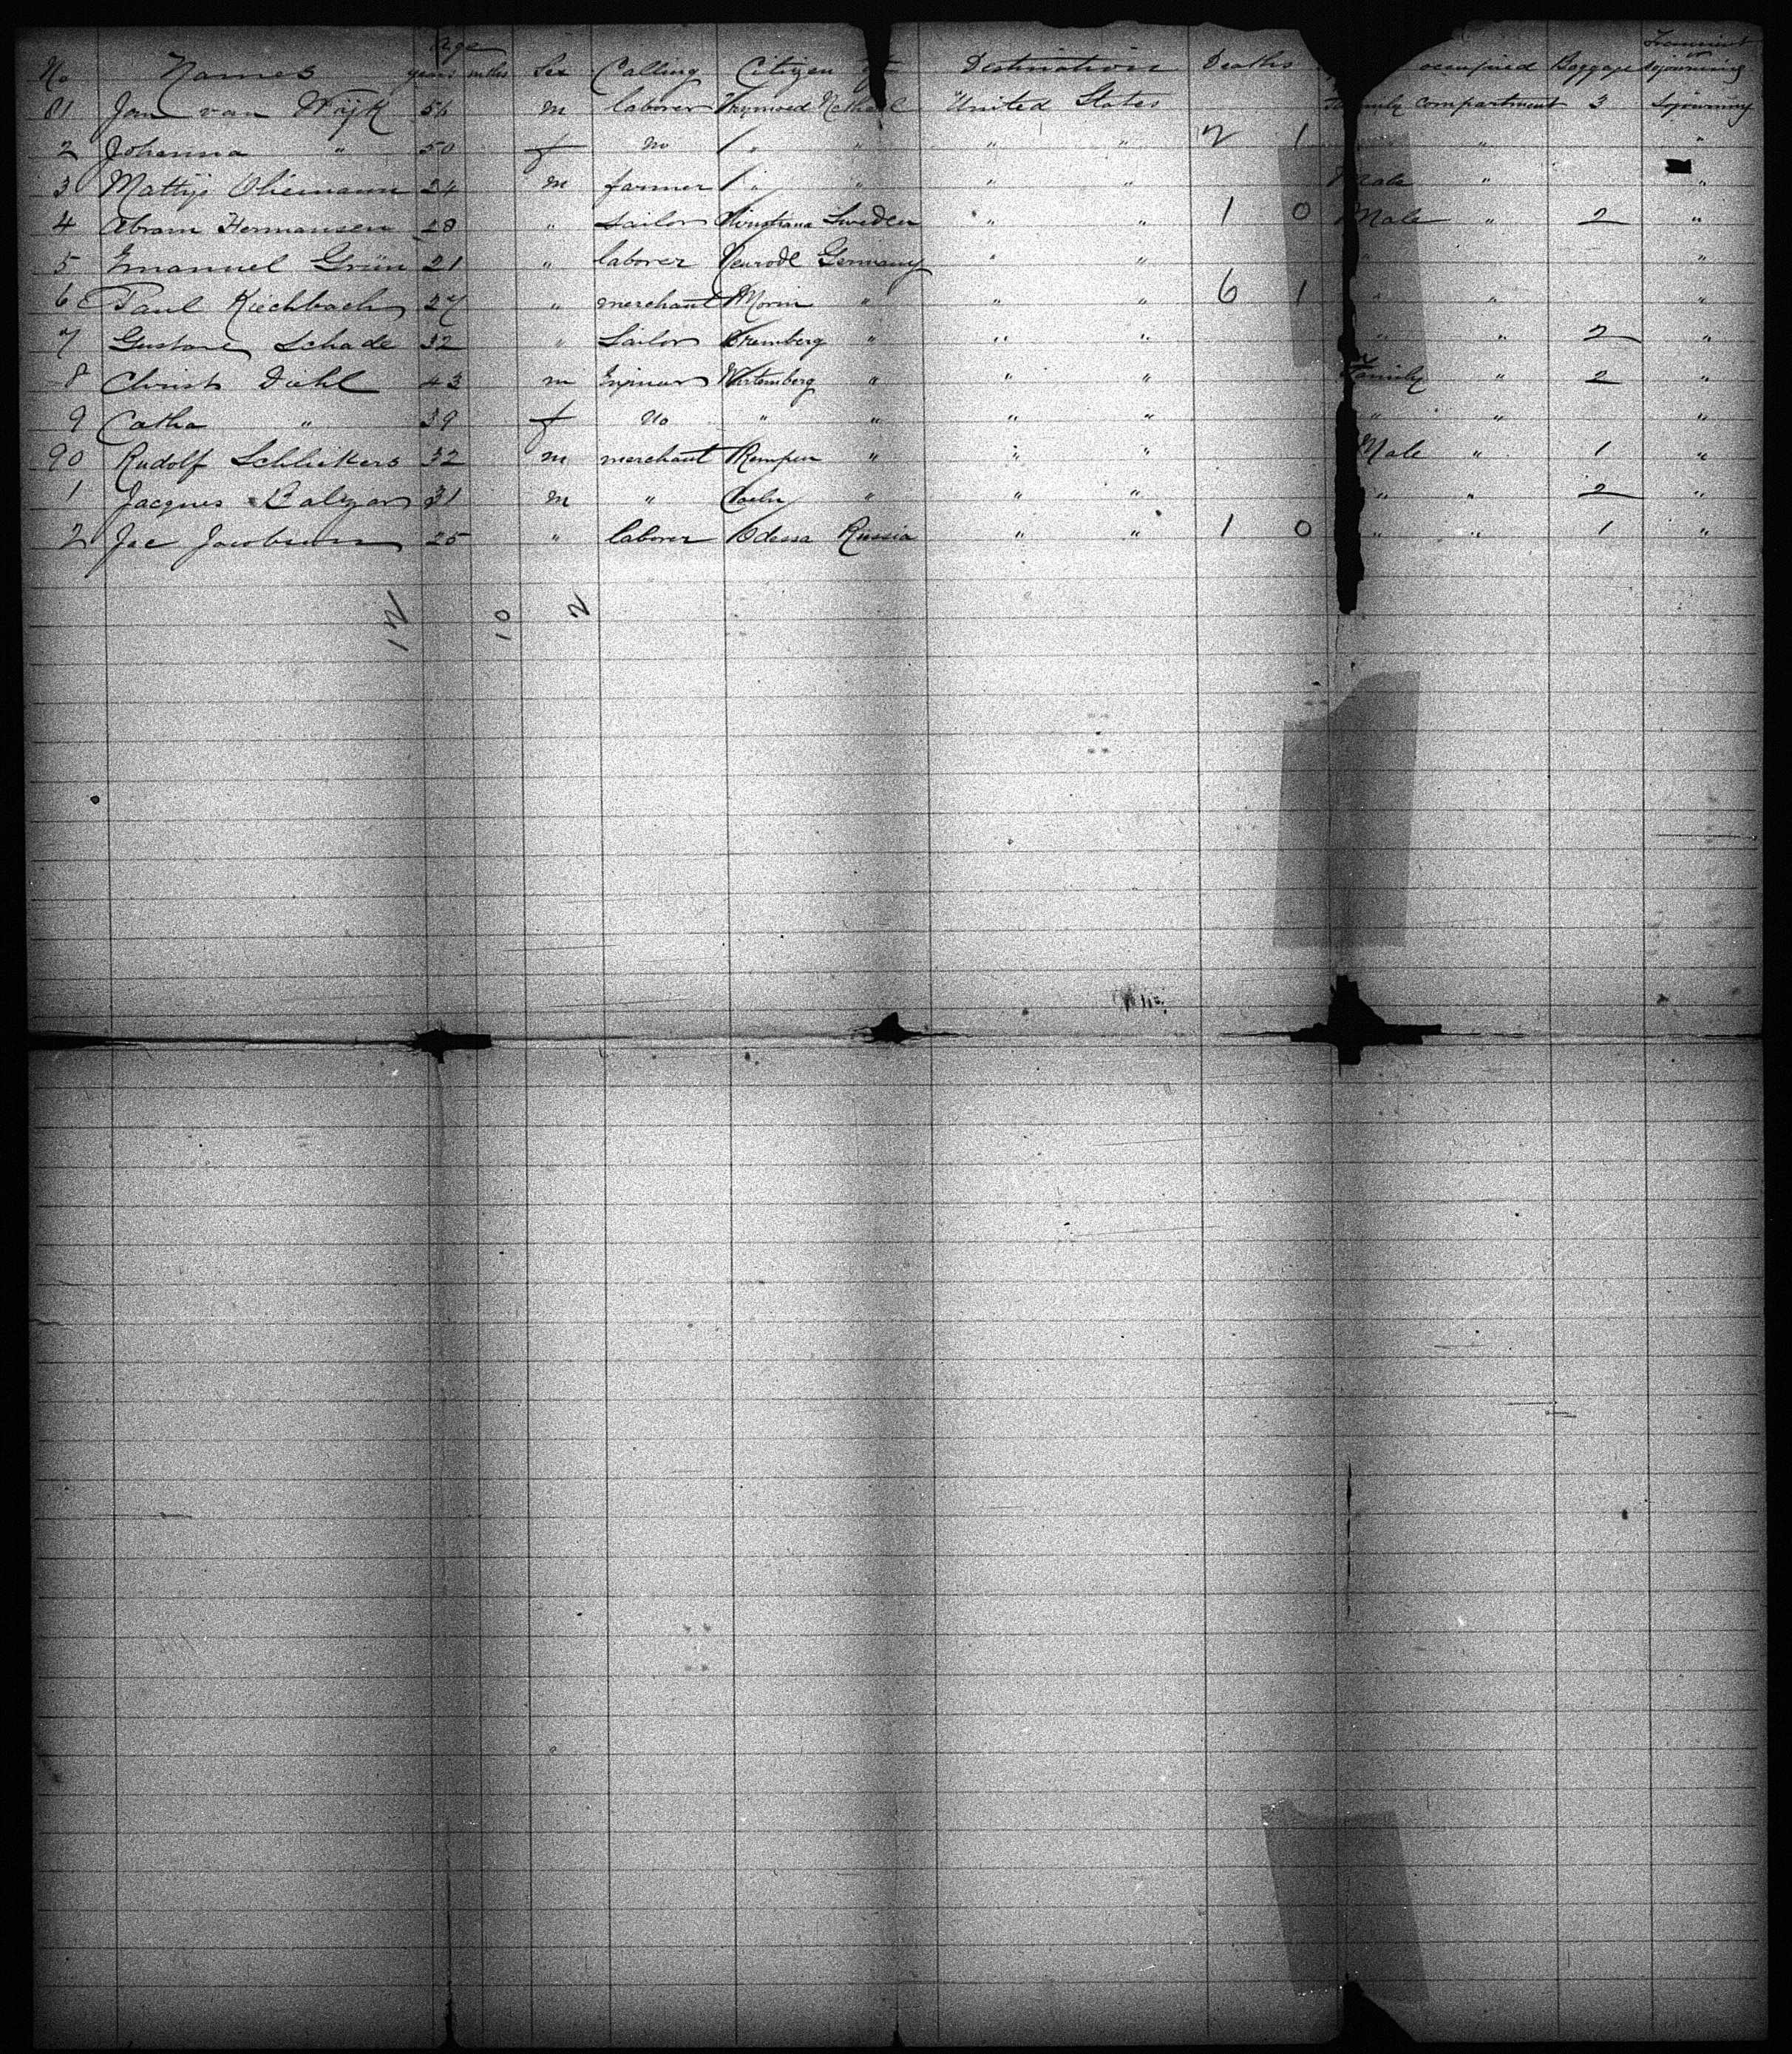 Age
No Names years mths Sex Calling Citizen of Destination Deaths occupied Baggage Transient or Sojourning
81 Jan van Wijk 56 m laborer United States Family compartment 3 Sojourning
2 Johanna " 50 f no " " " " 2 1 " "
3 Mattijs 24 m farmer " " " " Male " "
4 Abram Hermansen 28 " Sailor Sweden " " 1 0 Male " 2 "
5 Emanuel Grün 21 " laborer Neurode Germany " " " "
6 Paul 27 " merchant " " " 6 1 " " "
7 Gustave Schade 32 " Sailor " " " " " 2 "
8 Christ Diehl 43 m Wirtemberg " " " Family " 2 "
9 Catha " 39 f no " " " " " " "
90 Rudolf Schliekers 32 m merchant Kempen " " " Male " 1 "
1 Jacques 31 m " Coeln " " " " " 2 "
2 Jac 25 " laborer Odessa Russia " " 1 0 " " 1 "
12 10 2